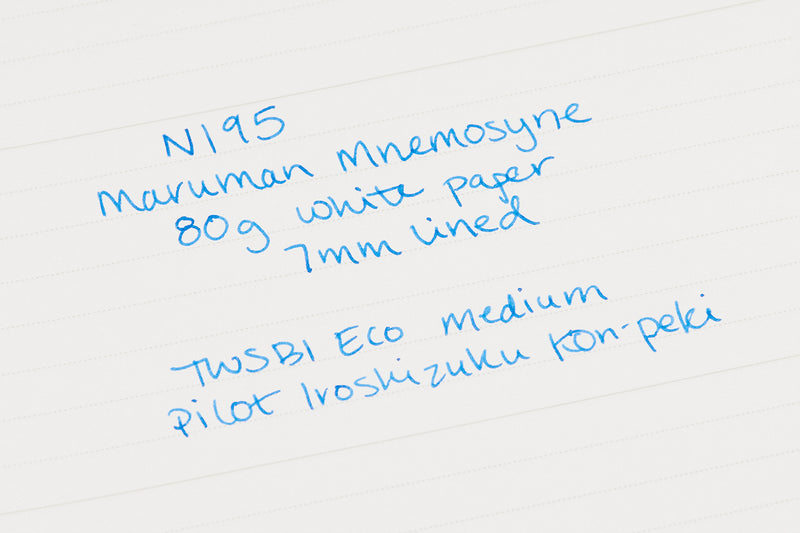 N195
Maruman Mnemosyne
80g white paper
7mm lined
TWSBI Eco medium
Pilot Iroshizuku Kon-peki